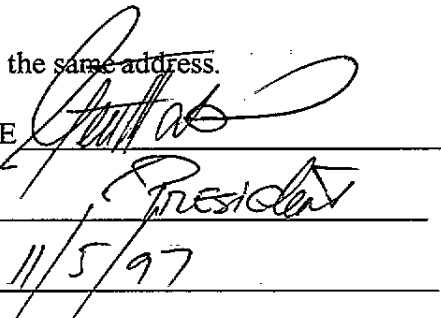 the same address.
E
President
11/5/97